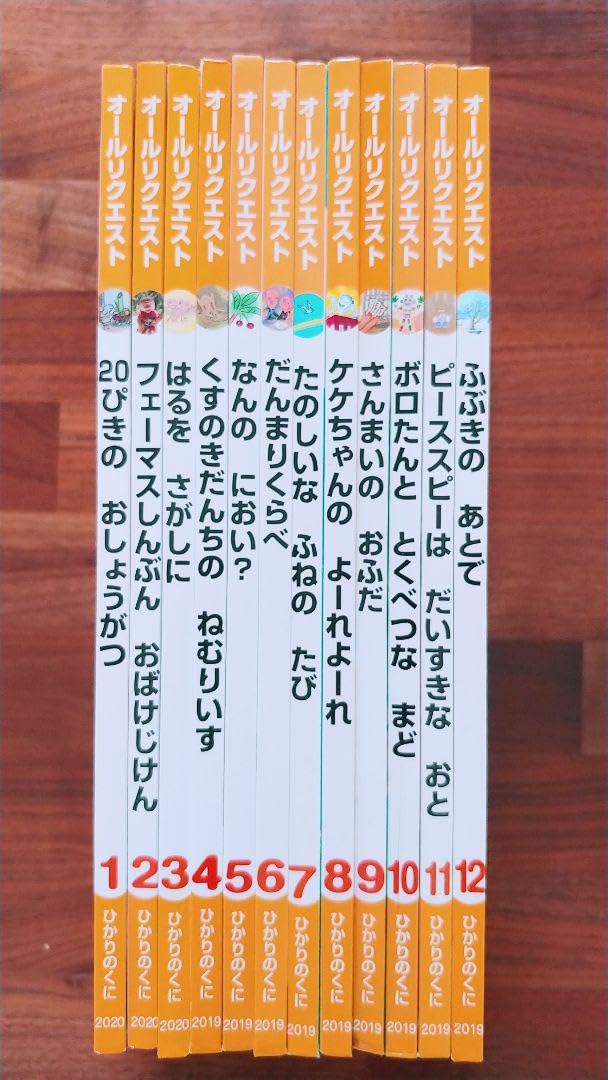 オールリクエスト
20ぴきの おしょうがつ
1
ひかりのくに
2020
オールリクエスト
フェーマスしんぶん おばけじけん
2
ひかりのくに
2020
オールリクエスト
はるを さがしに
3
ひかりのくに
2020
オールリクエスト
くすのきだんちの ねむりいす
4
ひかりのくに
2019
オールリクエスト
なんの におい?
5
ひかりのくに
2019
オールリクエスト
だんまりくらべ
6
ひかりのくに
2019
オールリクエスト
たのしいな ふねの たび
7
ひかりのくに
2019
オールリクエスト
ケケちゃんの よーれよーれ
8
ひかりのくに
2019
オールリクエスト
さんまいの おふだ
9
ひかりのくに
2019
オールリクエスト
ボロたんと とくべつな まど
10
ひかりのくに
2019
オールリクエスト
ピーススピーは だいすきな おと
11
ひかりのくに
2019
オールリクエスト
ふぶきの あとで
12
ひかりのくに
2019